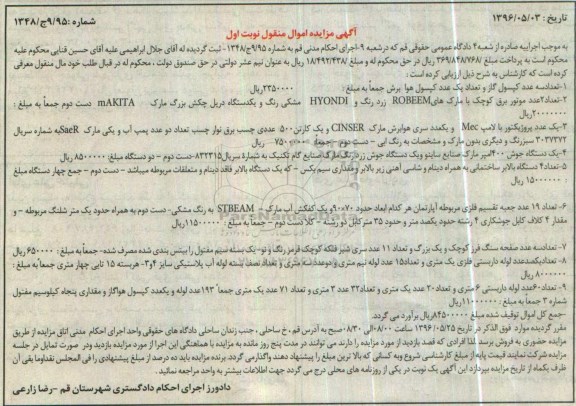 تاریخ : ۱۳۹۶/۰۵/۰۳
شماره: ۱۳۴۸/ج۹/۹۵
آگهی مزایده اموال منقول نوبت اول
به موجب اجراییه صادره از شعبه ۴ دادگاه عمومی حقوقی قم که درشعبه ۹-اجرای احکام مدنی قم به شماره ۹/۹۵ج/۱۳۴۸- ثبت گردیده له آقای جلال ابراهیمی علیه آقای حسین قنایی محکوم علیه
محکوم است به پرداخت مبلغ ۳۶۹/۸۴۸/۷۶۸ ریال در حق محکوم له و مبلغ ۱۸/۴۹۲/۴۳۸ ریال به عنوان نیم عشر دولتی در حق صندوق دولت ، محکوم له در قبال طلب خود مال منقول معرفی
کرده است که کارشناس به شرح ذیل ارزیابی کرده است :
۱-تعدادسه عدد کپسول گاز و تعداد یک عدد کپسول هوا برش جمعاً به مبلغ : ۲۳۵۰۰۰۰ریال
۲-تعداد۲عدد موتور برق کوچک با مارک های ROBEEM زرد رنگ و HYONDI مشکی رنگ و یکدستگاه دریل چکش بزرگ مارک mAKITA دست دوم جمعاً به مبلغ :
۲۰۰۰۰۰۰۰ریال
۳-یک عدد پروژیکتور با لامپ Mec و یکعدد سری هوابرش مارک CINSER و یک کارتن ۵۰۰ عددی چسب برق نوار چسب تعداد دو عدد پمپ آب و یکی مارک SaeR به شماره سریال
۳۰۳۷۳۷۲ سبزرنگ و دیگری بدون مارک و مشخصات به رنگ آبی – دست دوم – جمعاً ۷۵۰۰۰۰۰ ریال
۴-یک دستگاه جوش ۴۰۰آمپر مارک صنایع ساینو ویک دستگاه جوش زرد رنگ مارک صنایع گام تکنیک به شماره سریال۸۳۲۳۱۵-دست دوم – دو دستگاه مبلغ: ۸۵۰۰۰۰۰ریال
۵-تعداد۴ دستگاه بالابر ساختمانی به همراه دینام و شاسی آهنی زیر بالابر و مقداری سیم بکس – که یک دستگاه بالابر فاقد دینام و متعلقات مربوطه میباشد – دست دوم – جمع چهار دستگاه مبلغ
۱۵۰۰۰۰۰۰ ریال
۶- تعداد ۱۹ عدد جعبه تقسیم فلزی مربوطه آپارتمان هر کدام ابعاد حدود ۷۰×۹۰و یک کفکش آب مارک – STBEAM به رنگ مشکی- دست دوم به همراه حدود یک متر شلنگ مربوطه – و
مقدار ۴ کلاف کابل جوشکاری ۴ رشته حدود یکصد متر و حدود ۳۵ مترکابل دو رشته – کلا دست دوم – جمعاً به مبلغ : ۱۱۵۰۰۰۰۰ ریال
۷- تعدادسه عدد صفحه سنگ فرز کوچک و یک بزرگ و تعداد ۱۱ عدد سری شیر فلکه کوچک قرمز رنگ و نو- یک بسته سیم مفتول را بیتس بندی شده مصرف شده- جمعاً به مبلغ : ۶۵۰۰۰۰ ریال
۸-تعدادیکصدعدد لوله داربستی فلزی یک متری و تعداد۱۵ عدد لوله نیم متری و دوعددسه متری و تعداد نصف بسته لوله آب پلاستیکی سایز ۴و۳- هربسته ۱۵ تایی چهار متری جمعاً به مبلغ :
۸۰۰۰۰۰۰ ریال
۹- تعداد ۶۰عدد لوله داربستی ۶متری و تعداد۲۰ عدد یک متری و تعداد۳۲ عدد ۳ متری و تعداد ۷۱ عدد یک متری جمعاً ۱۹۳عدد لوله و یکعدد کپسول هواگاز و مقداری پنجاه کیلوسیم مفتول
شماره ۳ جمعاً به مبلغ : ۱۱۰۰۰۰۰۰ریال
-جمع کل اموال توقیف شده مبلغ ۸۴۵۰۰۰۰۰ریال برآورد می گردد.
مقرر گردیده موارد فوق الذکر در تاریخ ۱۳۹۶/۰۵/۲۵ ساعت ۰۸/۰۰الی ۰۸/۳۰صبح به آدرس قم ،خ ساحلی ،جنب زندان ساحلی دادگاه های حقوقی واحد اجرای احکام مدنی اتاق مزایده از طریق
مزایده حضوری به فروش برسد.لذا افرادی که قصد بازدید از مورد مزایده را دارند می توانند در مدت پنج روز مانده به مزایده با هماهنگی این اجرا از مورد مزایده بازدید ودر صورت تمایل در جلسه
مزایده شرکت نمایند قیمت پایه از مبلغ کارشناسی شروع وبه کسانی که بالا ترین مبلغ را پیشنهاد دهند واگذارمی گردد. برنده مزایده باید ده درصد از مبلغ پیشنهادی را فی المجلس نقداوما بقی آن
ظرف یکماه از تاریخ مزایده بپردازد این آگهی یک نوبت در یکی از روزنامه های محلی درج می گردد جهت اطلاعات بیشتر به واحد مراجعه نمائید .
دادورز اجرای احکام دادگستری شهرستان قم –رضا زارعی